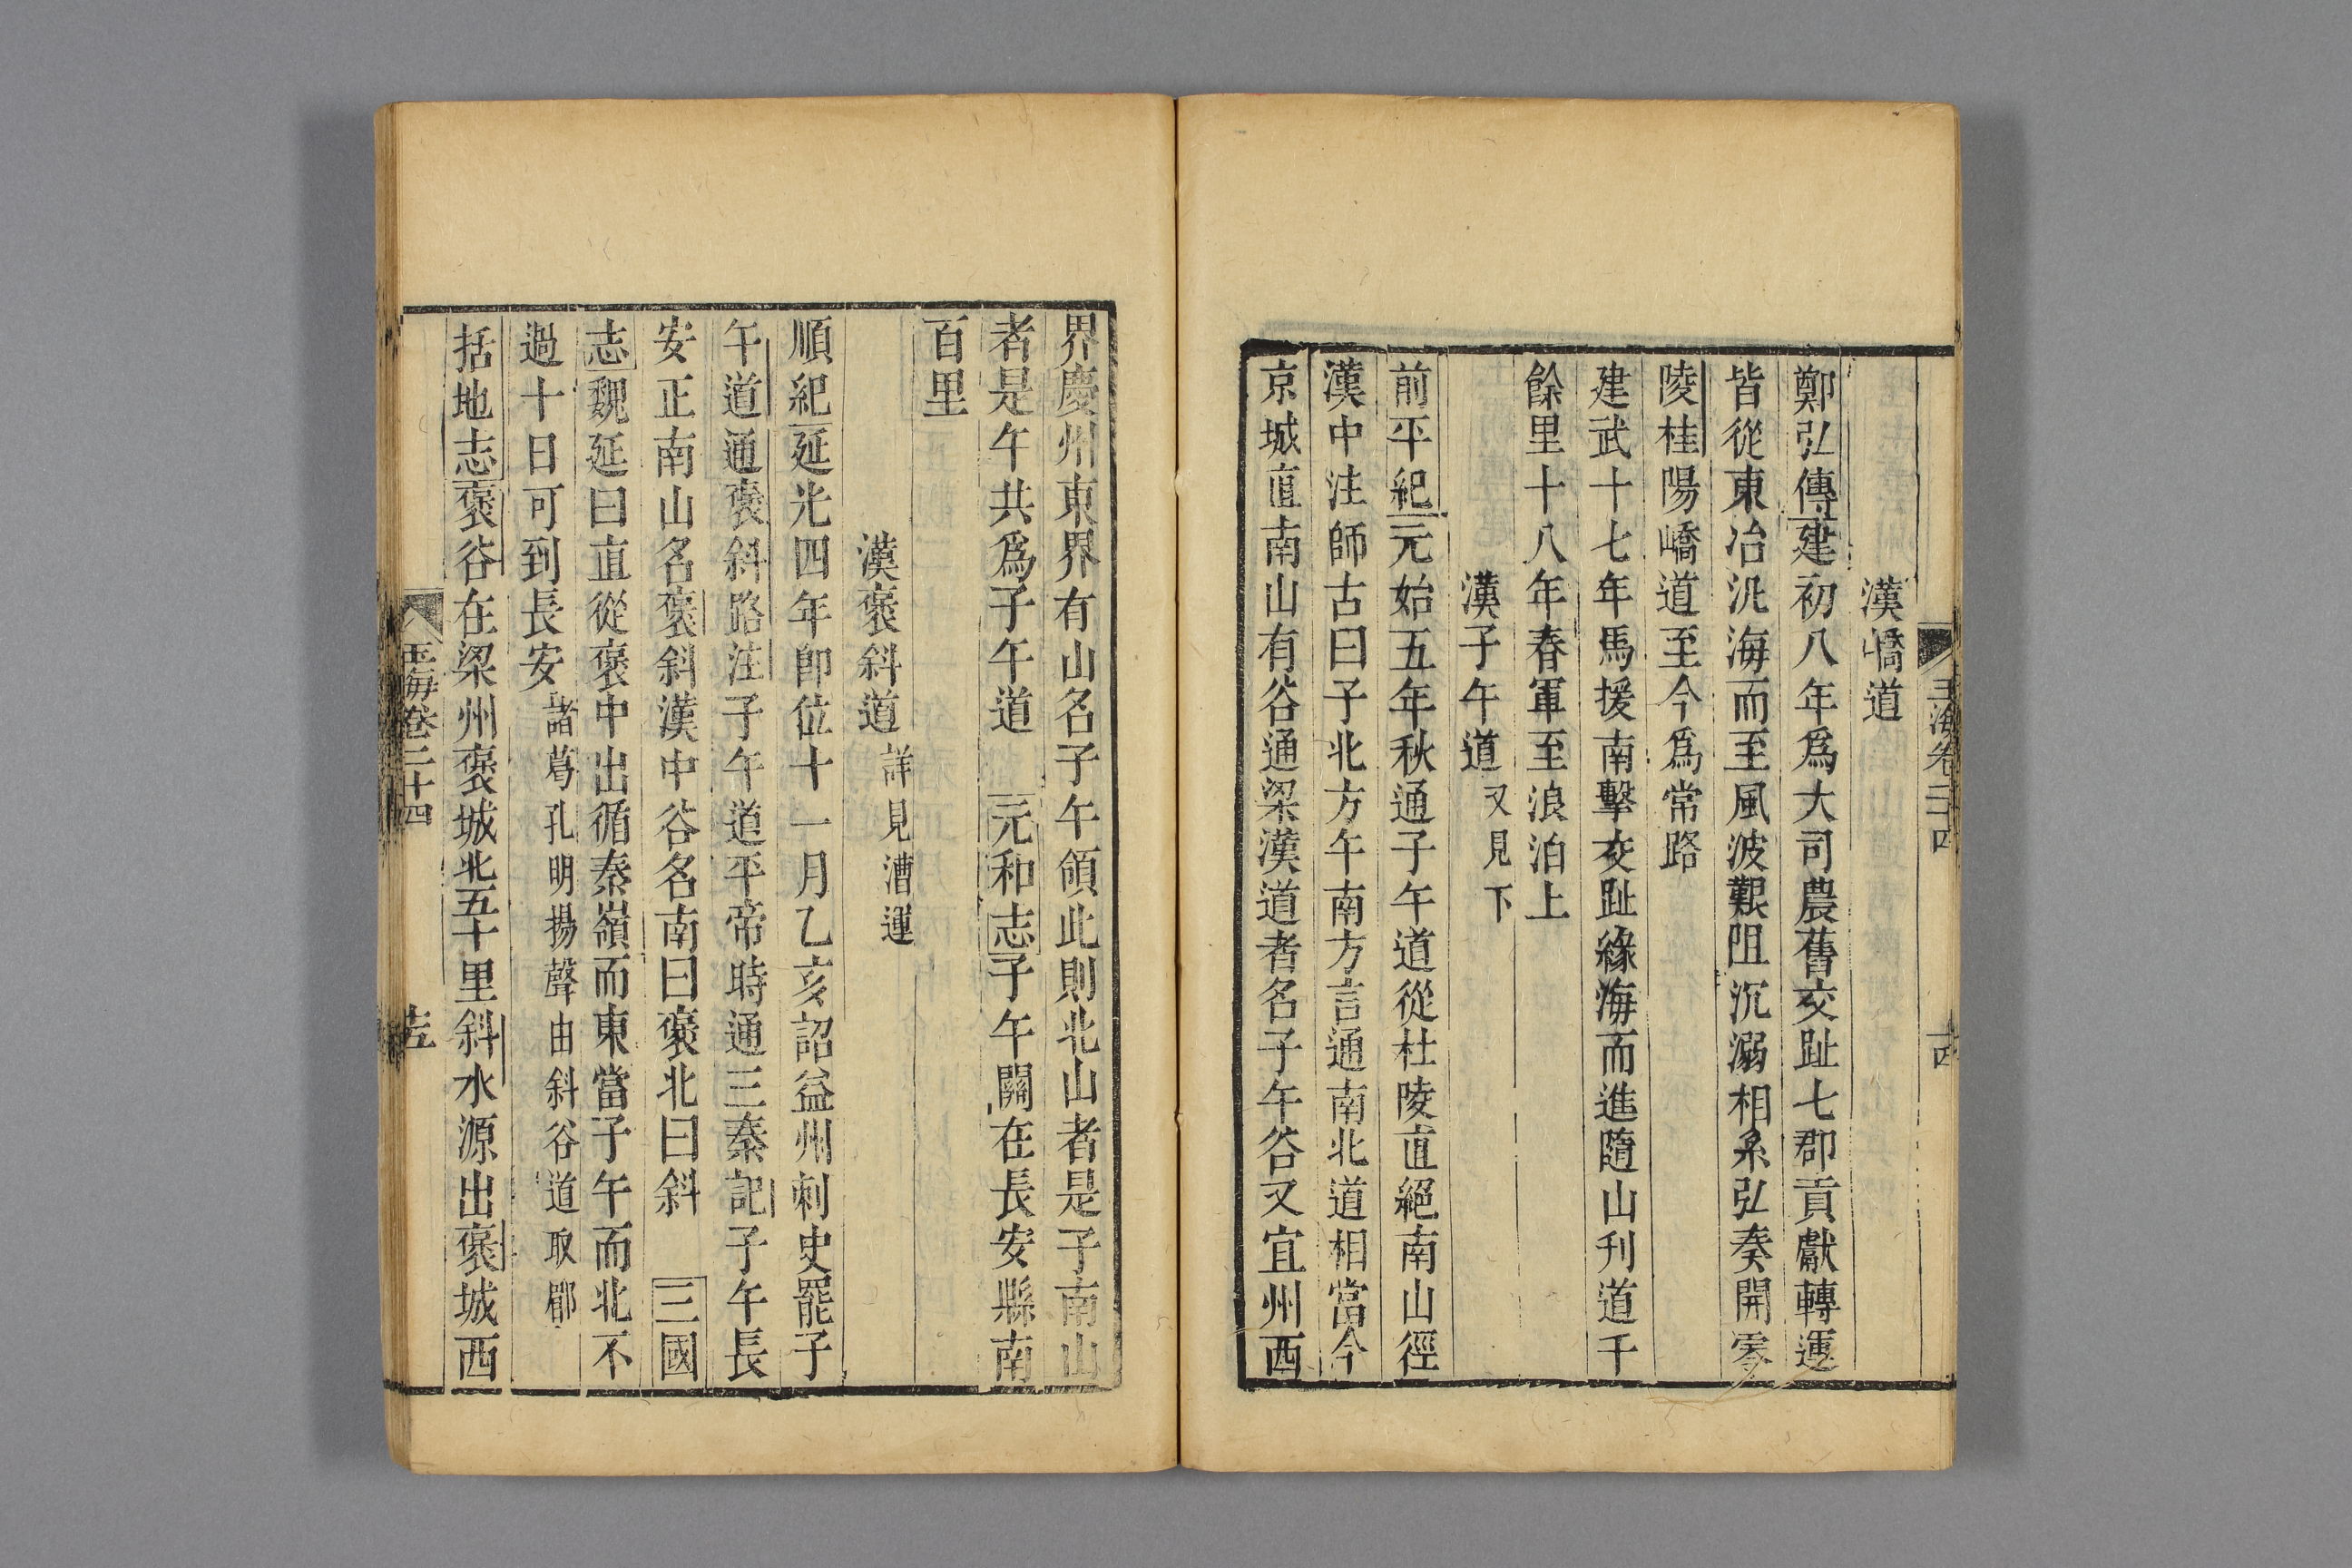 玉海卷二十四
十四
漢嶠道
鄭弘傳建初八年爲大司農舊交趾七郡貢獻轉運
皆從東冶汎海而至風波艱阻沉溺相系弘奏開零
陵桂陽嶠道至今爲常路
建武十七年馬援南擊交趾緣海而進隨山刊道千
餘里十八年春軍至浪泊上
漢子午道又見下
前平紀元始五年秋通子午道從杜陵直絕南山徑
漢中注師古曰子北方午南方言通南北道相當今
京城直南山有谷通梁漢道者名子午谷又宜州西
界慶州東界有山名子午領此則北山者是子南山
者是午共爲子午道 元和志子午關在長安縣南
百里
漢褒斜道詳見漕運
順紀延光四年卽位十一月乙亥詔益州刺史罷子
午道通褒斜路注子午道平帝時通三秦記子午長
安正南山名褒斜漢中谷名南曰褒北曰斜 三國
志魏延曰直從褒中出循秦嶺而東當子午而北不
過十日可到長安諸葛孔明揚聲由斜谷道取郿
括地志褒谷在梁州褒城北五十里斜水源出褒城西
玉海卷二十四